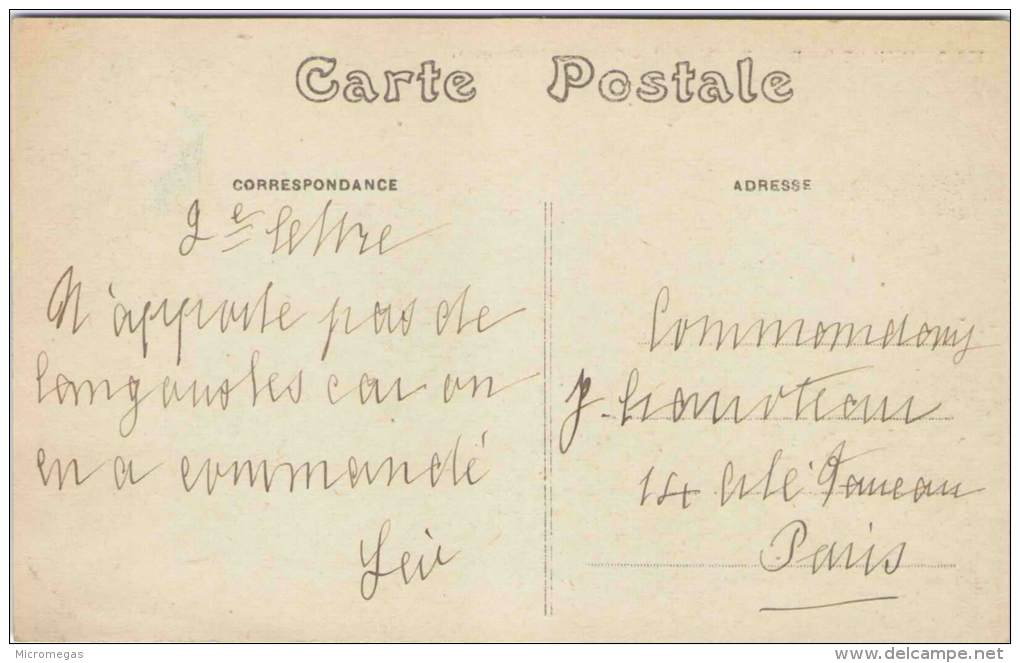 Carte Postale
CORRESPONDANCE
ADRESSE
2e lettre
N'apporte pas de
langoustes car on
en a commandé
Commandant
14 Cité Vaneau
Paris
Micromegas
www.delcampe.net